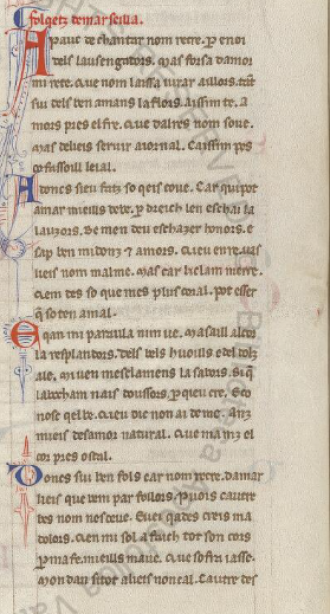 folqetz demarseilla.
A pauc de chantar nom recre. p enoi
dels lausengadors. Mas forsa damor
mi rete. Que nom laissa virar aillors. tāt
sui dels ben amans la flors. aissim te. a
mors pres el fre. Que dalres nom soue.
mas delieis seruir aiornal. Caissim pes
leial.
Adoncs sieu fatz so qeis coue. Car qui pot
amar mieills deue. p dreich len eschai la
lauzors. Be men deu eschazer honors. e
sap ben midonz 7 amors. Qieu en re. vas
lieis nom malme. Mas car li clam merce.
clem des so que mes plus coral. pot esser
q̄ so ten a mal.
E qan mi paraula nim ue.
la resplandors. dels bels huoills e del
ale. mi uen mesclamens la sabors. Si q̄
la bocham nais doussors. p qieu cre. Eco
nose qel be. Qieu dic non ai de me. Anz
mueis desamor natural. Que ma mz el
cor pres ostal.
Doncs sui ben fols car nom recre. damar
lieis que uem par follors. Puois cautre
bes nom nes coue.
dolors. Qen mi sol a faich tot son cors
p ma fe. mieills maue. Que sofrir iasse.
mon dan sitot alieis non cal. Cautre des